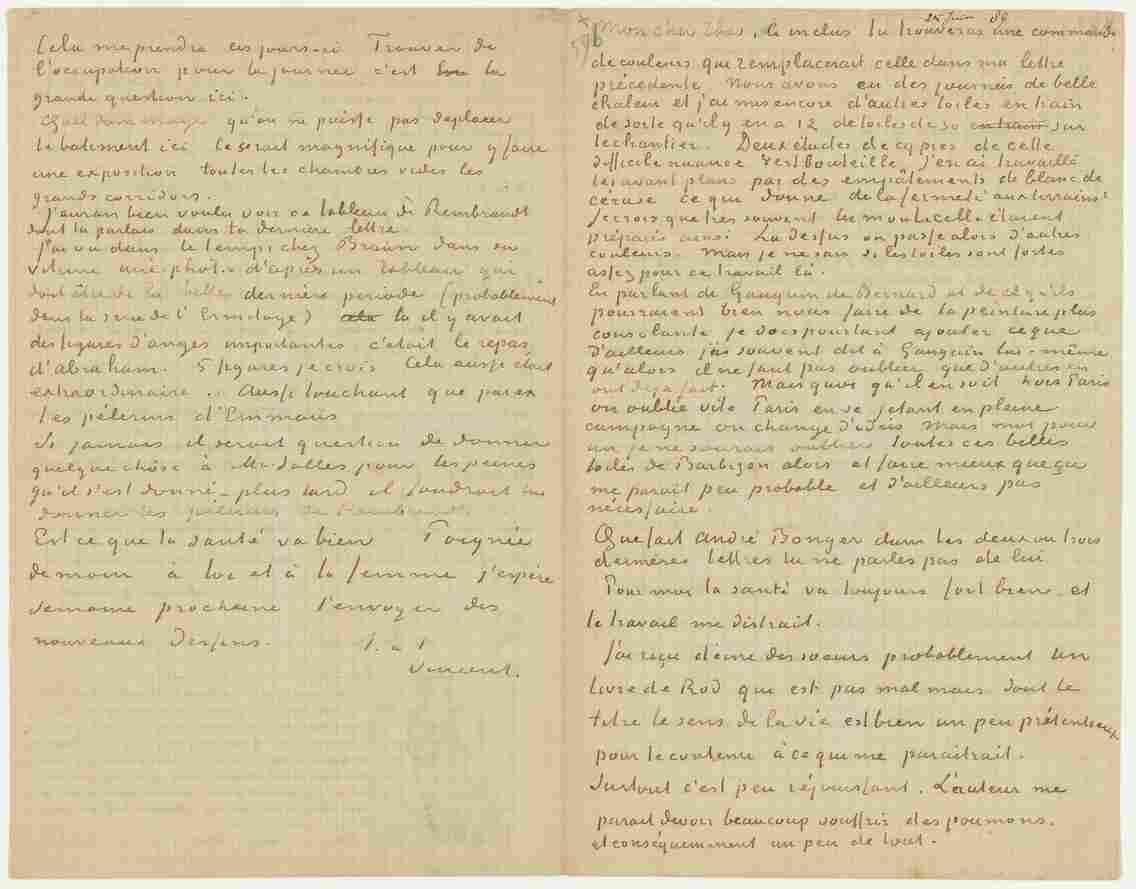 Cela me prendra ces jours-ci Trouver de
l'occupation pour la journée c'est la
grande question ici.
C'est dommage qu'on ne puisse pas deplacer
le batiment ici. Ce serait magnifique pour y faire
une exposition toutes les chambres vides les
grands corridors.
J'aurais bien voulu voir ce tableau de Rembrandt
dont tu parlais dans ta dernière lettre.
J'ai vu dans le temps chez Braun dans sa
vitrine une photo d'après un tableau qui
doit être de la belle dernière periode (probablement
dans la serie de l'Ermitage) là il y avait
des figures d'anges importantes c'était le repas
d'Abraham. 5 figures je crois Cela aussi était
extraordinaire. Aussi touchant que par ex
les pèlerins d'Emmaus
Si jamais il serait question de donner
quelque chôse à M. Salles pour les peines
qu'il s'est donné - plus tard il faudrait lui
donner les pèlerins de Rembrandt.
Est ce que la santé va bien Poignée
de main à toi et à ta femme j'espère
semaine prochaine t'envoyer des
nouveaux dessins. t. à t.
Vincent.
25 Juin 89
Mon cher Theo, ci inclus tu trouveras une commande
de couleurs qui remplacerait celle dans ma lettre
précédente. Nous avons eu des journées de belle
chaleur et j'ai mis encore d'autres toiles en train
de sorte qu'il y en a 12 de toiles de 30 en train sur
le chantier. Deux études de cyprès de cette
difficile nuance vert bouteille, j'en ai travaillé
les avant plans par des empâtements de blanc de
ceruse ce que donne de la fermeté aux terrains.
Je crois que très souvent les monticelli étaient
préparés ainsi. Là dessus on passe alors d'autres
couleurs. Mais je ne sais si les toiles sont fortes
assez pour ce travail là.
En parlant de Gauguin de Bernard et de ce qu'ils
pourraient bien nous faire de la peinture plus
consolante je dois pourtant ajouter ce que
d'ailleurs j'ai souvent dit à Gauguin lui-même
qu'alors il ne faut pas oublier que d'autres en
ont déjà fait. Mais quoi qu'il en soit hors Paris
on oublie vite Paris en se jetant en pleine
campagne on change d'idées Mais moi pour
un je ne saurais oublier toutes ces belles
toiles de Barbizon alors et faire mieux que ça
me parait peu probable et d'ailleurs pas
nécéssaire.
Que fait André Bonger dans les deux ou trois
dernières lettres tu ne parles pas de lui
Pour moi la santé va toujours fort bien et
le travail me distrait.
J'ai reçu d'une des soeurs probablement un
livre de Rod qui est pas mal mais dont le
titre le sens de la vie est bien un peu prétentieux
pour le contenu à ce qui me paraitrait.
Surtout c'est peu réjouissant. L'auteur me
parait devoir beaucoup souffrir des poumons.
et conséquemment un peu de tout.